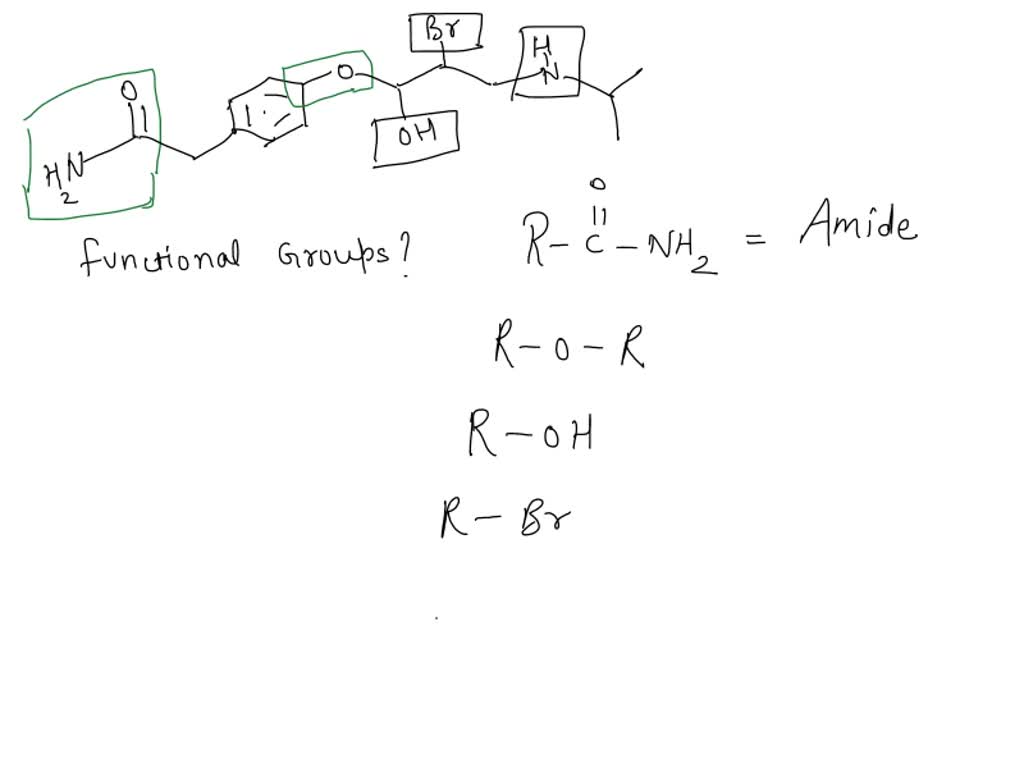 Br
H
N
O
O
OH
H2N
Functional Groups?
O
R - C - NH2 = Amide
R - O - R
R - OH
R - Br